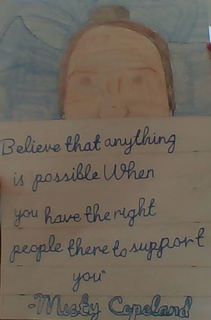 Believe that anything
is possible When
you have the right
people there to support
you"
-Misty Copeland